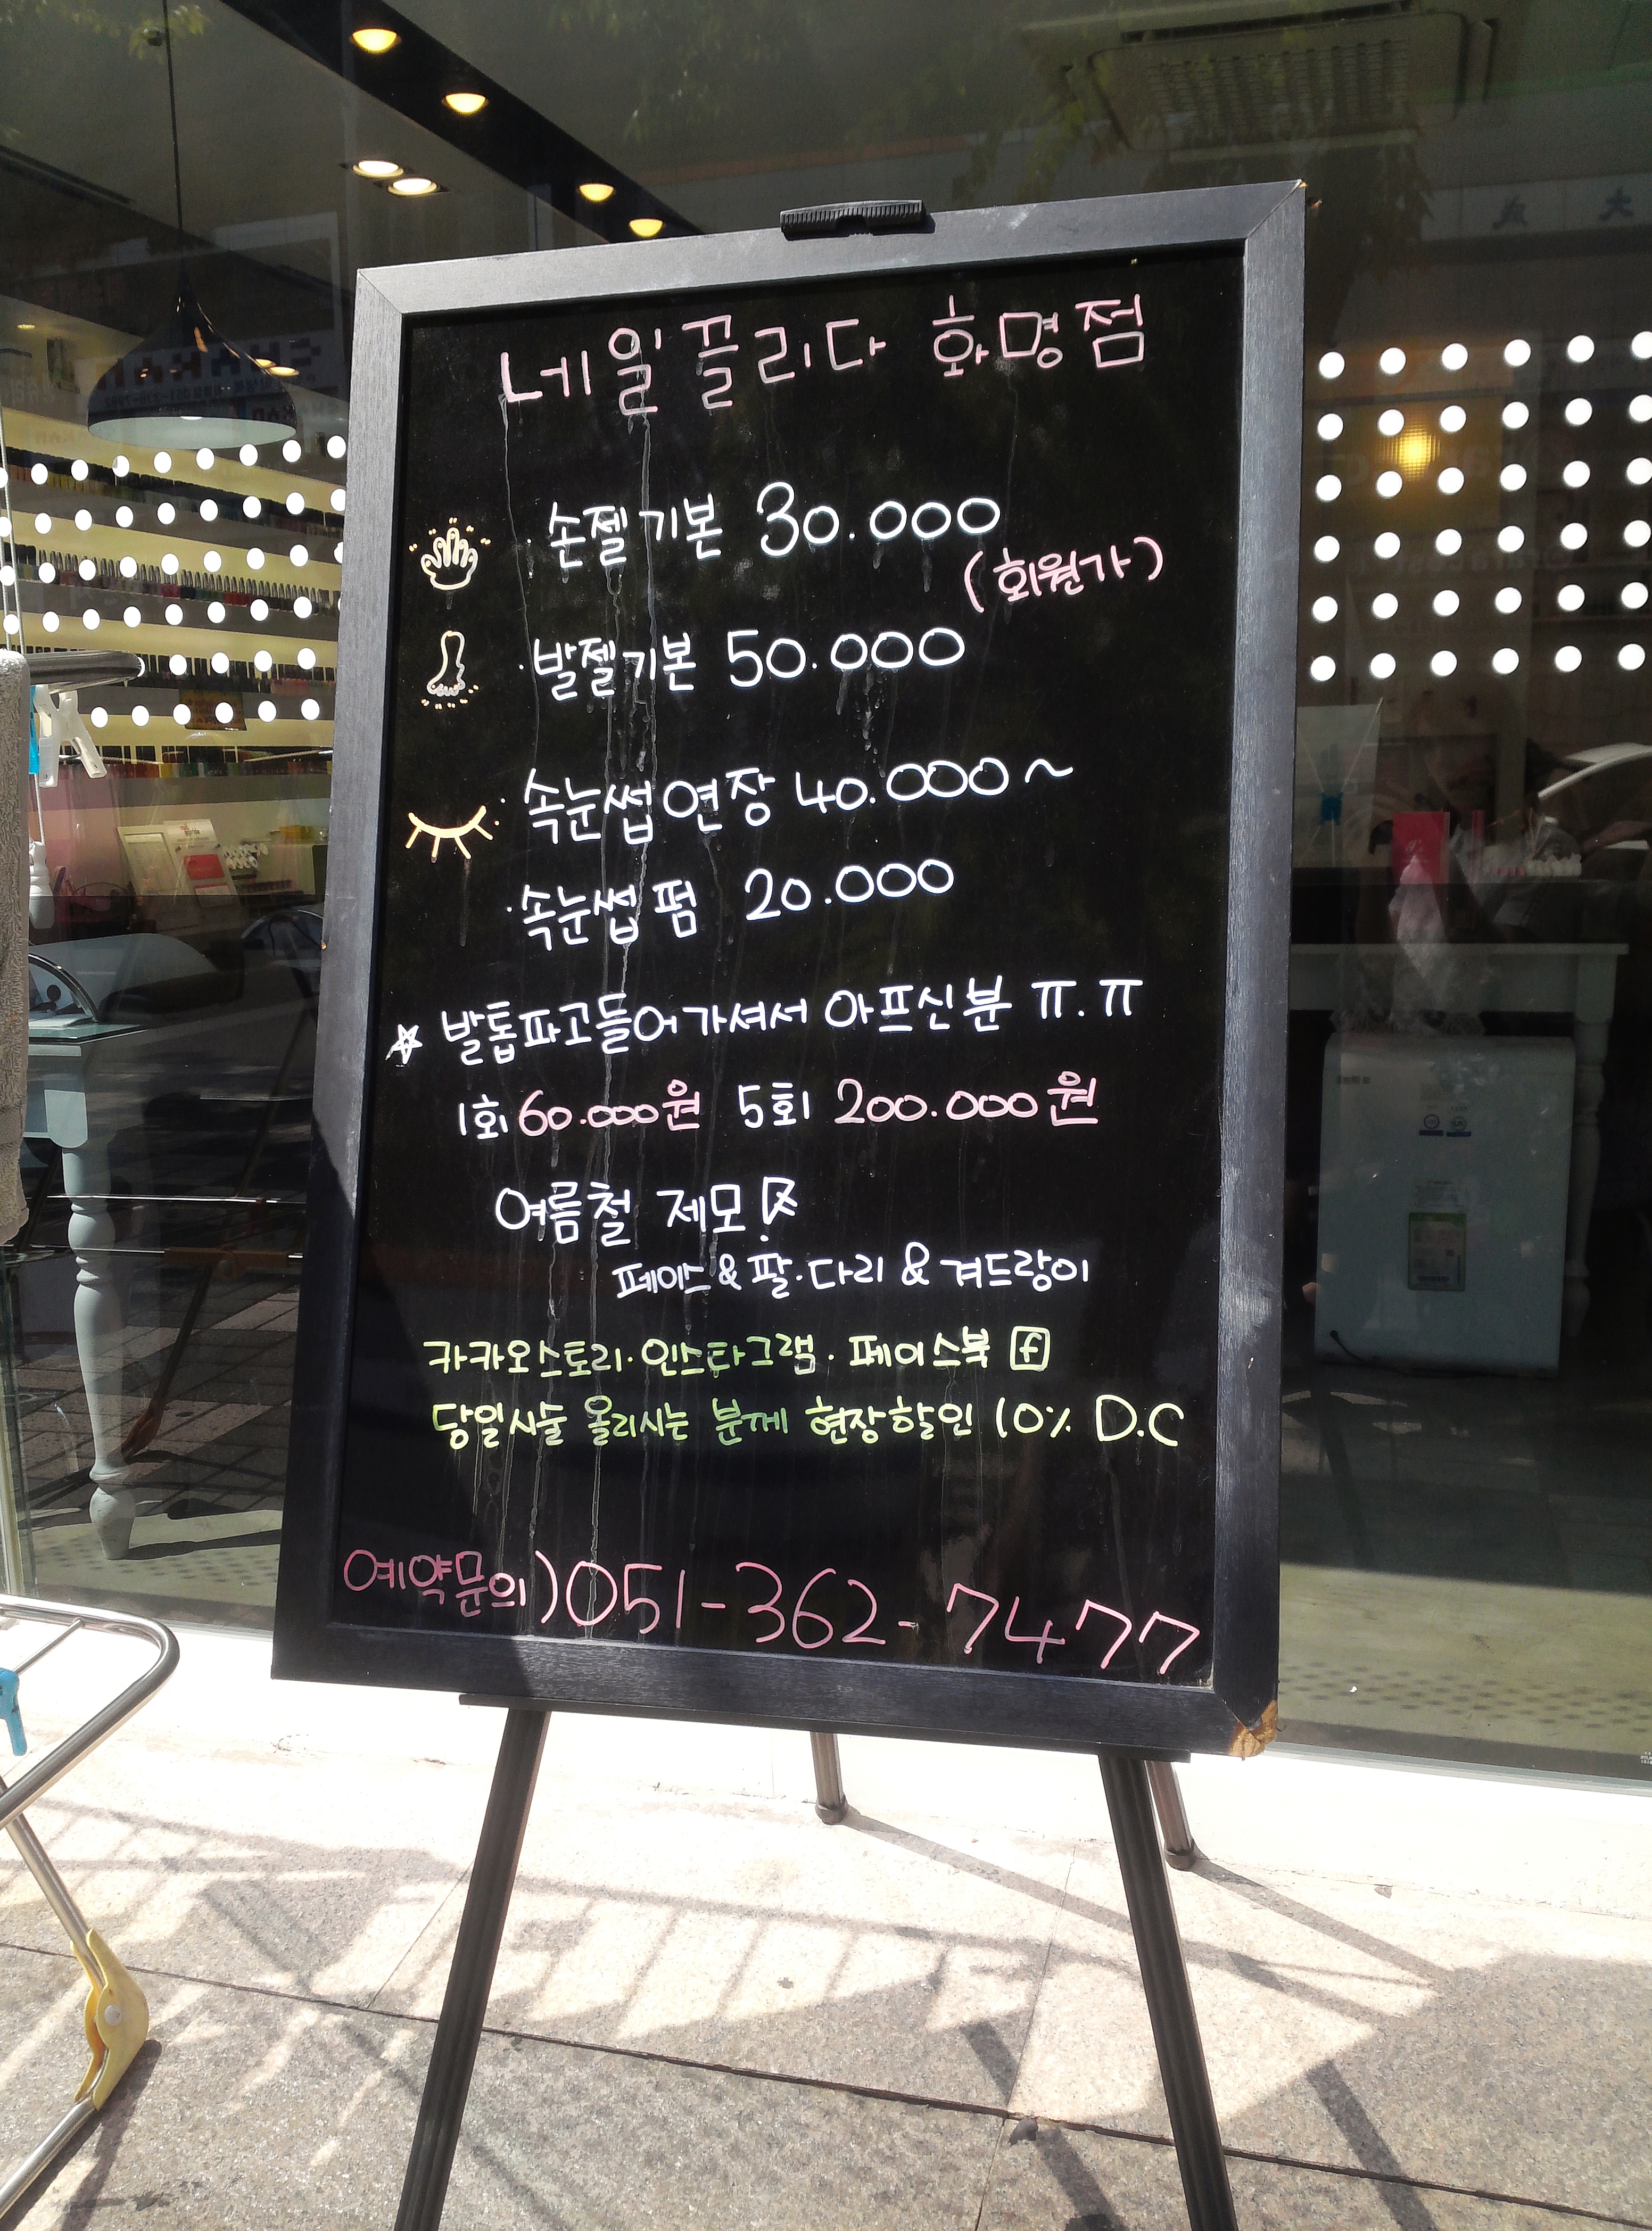 네일끌리다 화명점
· 손젤기본 30.000
(회원가)
· 발젤기본 50.000
· 속눈썹연장 40.000~
· 속눈썹펌 20.000
☆ 발톱파고들어가셔서 아프신분 ㅠ.ㅠ
1회 60.000원 5회 200.000원
여름철 제모!
페이스 & 팔·다리 & 겨드랑이
카카오스토리·인스타그램·페이스북 f
당일시술 올리시는 분께 현장할인 10% D.C
예약문의)051-362-7477